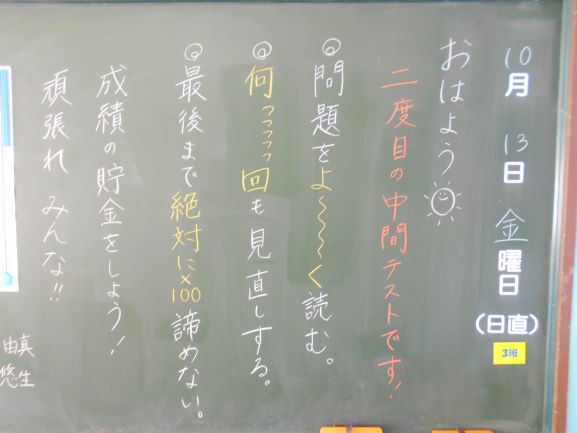 10月13日金曜日
(日直)
3班
おはよう
二度目の中間テストです!
◎問題をよ～～～く読む。
◎何っっっっ回も見直しする。
◎最後まで絶対に×100諦めない。
成績の貯金をしよう!
頑張れ みんな!!
真生
由悠